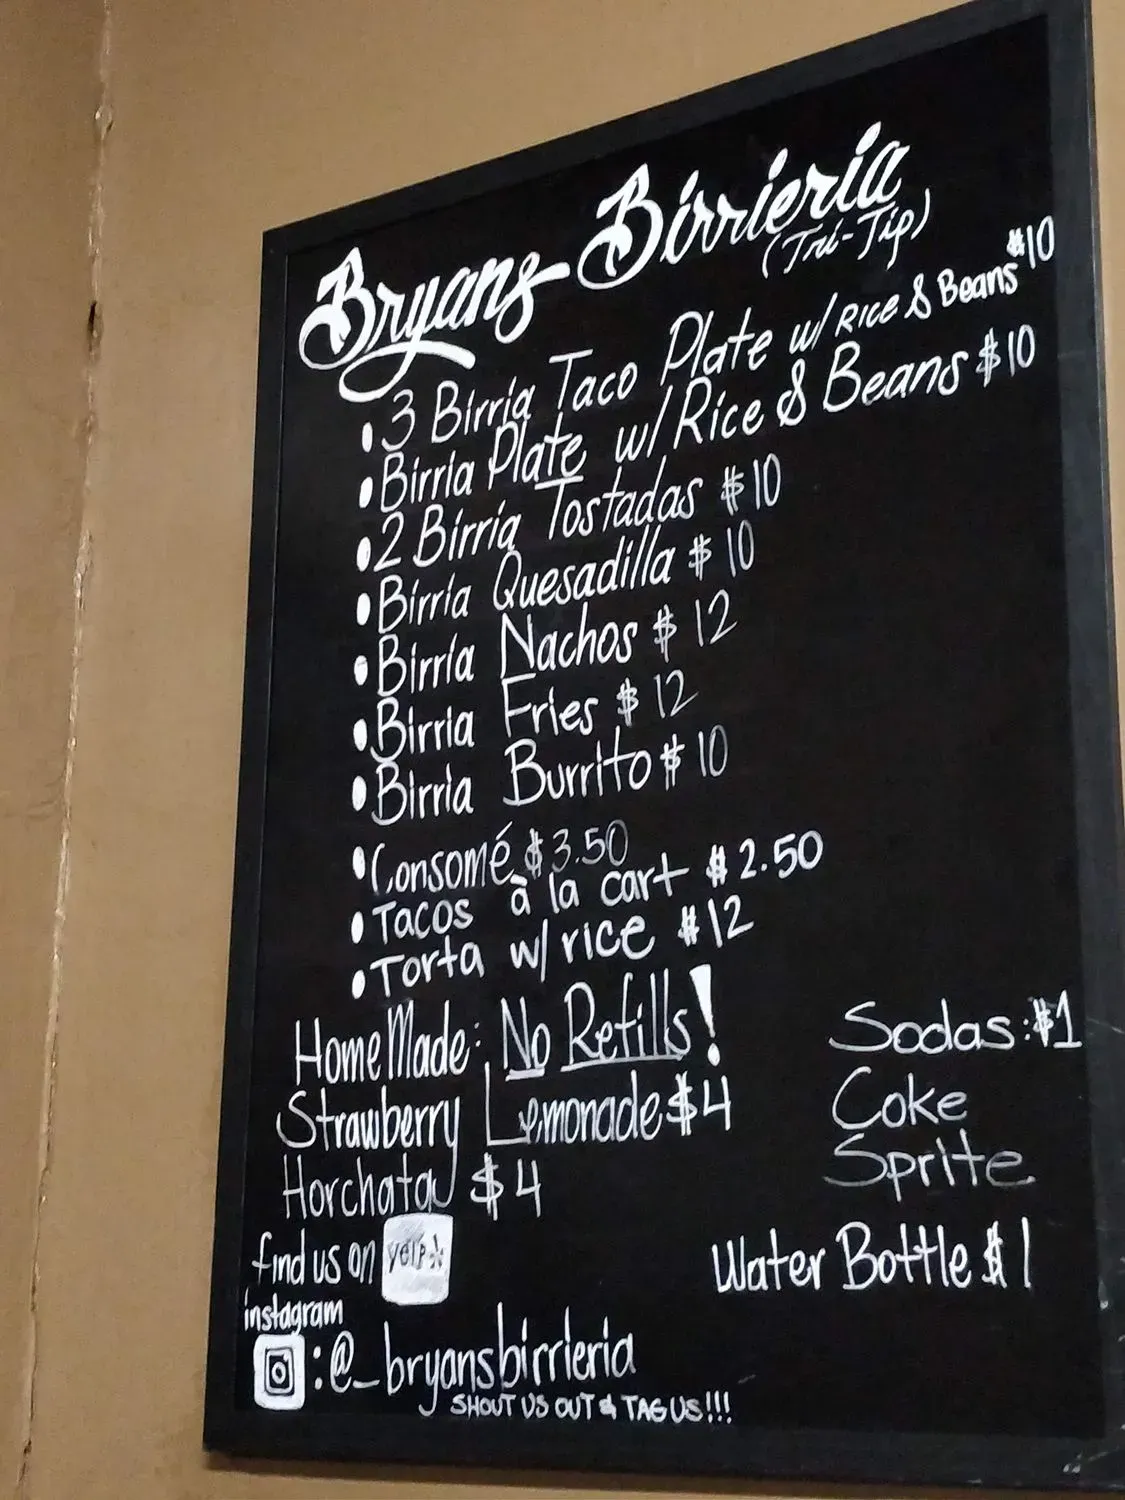 Bryans Birrieria
(Tri-Tip)
• 3 Birria Taco Plate w/ Rice & Beans $10
• Birria Plate w/ Rice & Beans $10
• 2 Birria Tostadas $10
• Birria Quesadilla $10
• Birria Nachos $12
• Birria Fries $12
• Birria Burrito $10
• Consomé $3.50
• Tacos à la cart $2.50
• Torta w/ rice $12
HomeMade: No Refills!
Strawberry Lemonade $4
Horchata $4
Sodas: $1
Coke
Sprite
Water Bottle $1
find us on yelp
instagram
: @_bryansbirrieria
SHOUT US OUT & TAG US!!!